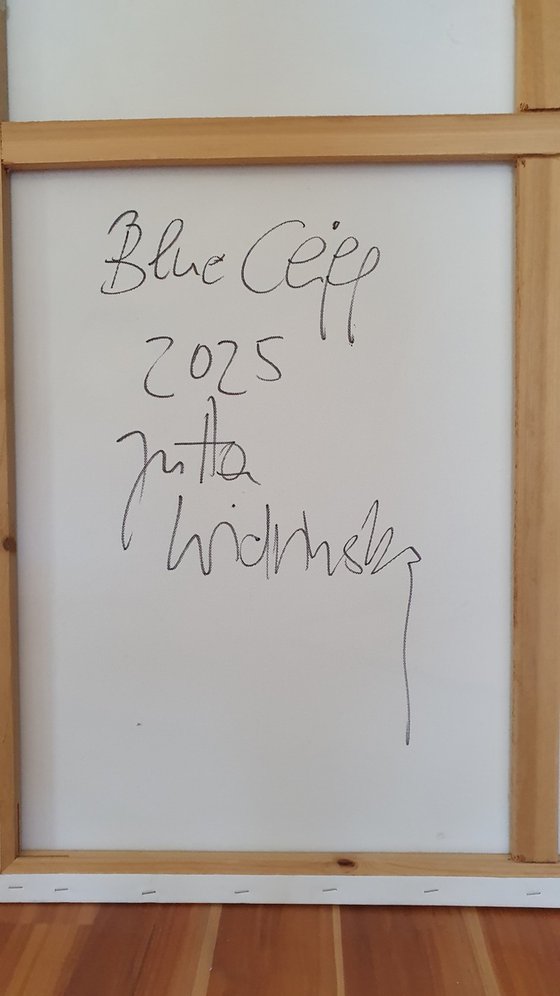 Blue Cliff
2025
Jutta